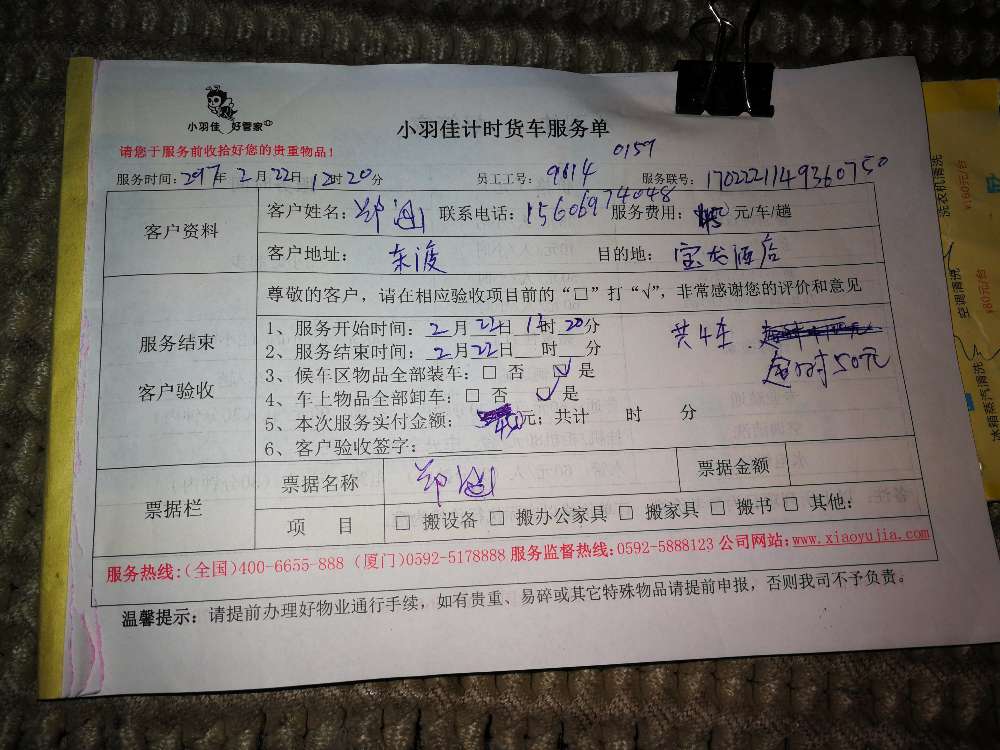 小羽佳 好管家
小羽佳计时货车服务单
请您于服务前收拾好您的贵重物品！
0157
服务时间：2017年 2月22日 12时20分 员工工号：9614 服务联号：1702221149360750
客户资料
客户姓名： 联系电话：15606974048 服务费用： 元/车/趟
客户地址： 东渡 目的地： 宝龙酒店
尊敬的客户，请在相应验收项目前的“□”打“√”，非常感谢您的评价和意见
服务结束
客户验收
1、服务开始时间：2月22日 12时20分
2、服务结束时间：2月22日 时 分
3、候车区物品全部装车：□ 否 ☑ 是
4、车上物品全部卸车：□ 否 ☑ 是
5、本次服务实付金额： 元；共计 时 分
6、客户验收签字：
共4车.
超时50元
票据栏
票据名称 票据金额
项 目 □ 搬设备 □ 搬办公家具 □ 搬家具 □ 搬书 □ 其他：
服务热线：(全国)400-6655-888 (厦门)0592-5178888 服务监督热线：0592-5888123 公司网站：www.xiaoyujia.com
温馨提示：请提前办理好物业通行手续，如有贵重、易碎或其它特殊物品请提前申报，否则我司不予负责。
洗衣机清洗
¥160元/台
空调清洗
¥80元/台
冰箱蒸汽清洗